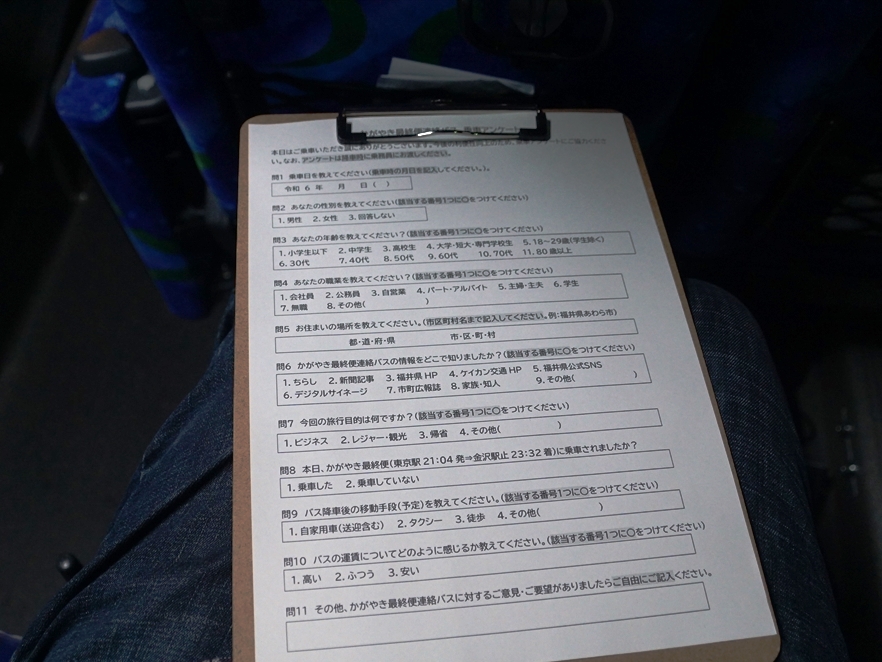 かがやき最終便 アンケート
本日はご乗車いただき誠にありがとうございます。今後の利便性向上のため、アンケートにご協力くださ
い。なお、アンケートは降車時に乗務員にお渡しください。
問1 乗車日を教えてください(乗車時の月日を記入してください。)。
令和 6 年 月 日 ( )
問2 あなたの性別を教えてください(該当する番号1つに○をつけてください)
1. 男性 2. 女性 3. 回答しない
問3 あなたの年齢を教えてください?(該当する番号1つに○をつけてください)
1. 小学生以下 2. 中学生 3. 高校生 4. 大学・短大・専門学校生 5. 18~29歳(学生除く)
6. 30代 7. 40代 8. 50代 9. 60代 10. 70代 11. 80歳以上
問4 あなたの職業を教えてください?(該当する番号1つに○をつけてください)
1. 会社員 2. 公務員 3. 自営業 4. パート・アルバイト 5. 主婦・主夫 6. 学生
7. 無職 8. その他( )
問5 お住まいの場所を教えてください。(市区町村名まで記入してください。例:福井県あわら市)
都・道・府・県 市・区・町・村
問6 かがやき最終便連絡バスの情報をどこで知りましたか?(該当する番号に○をつけてください)
1. ちらし 2. 新聞記事 3. 福井県 HP 4. ケイカン交通 HP 5. 福井県公式SNS
6. デジタルサイネージ 7. 市町広報誌 8. 家族・知人 9. その他( )
問7 今回の旅行目的は何ですか?(該当する番号1つに○をつけてください)
1. ビジネス 2. レジャー・観光 3. 帰省 4. その他( )
問8 本日、かがやき最終便(東京駅 21:04 発⇒金沢駅止 23:32 着)に乗車されましたか?
1. 乗車した 2. 乗車していない
問9 バス降車後の移動手段(予定)を教えてください。(該当する番号1つに○をつけてください)
1. 自家用車(送迎含む) 2. タクシー 3. 徒歩 4. その他( )
問10 バスの運賃についてどのように感じるか教えてください。(該当する番号1つに○をつけてください)
1. 高い 2. ふつう 3. 安い
問11 その他、かがやき最終便連絡バスに対するご意見・ご要望がありましたらご自由にご記入ください。